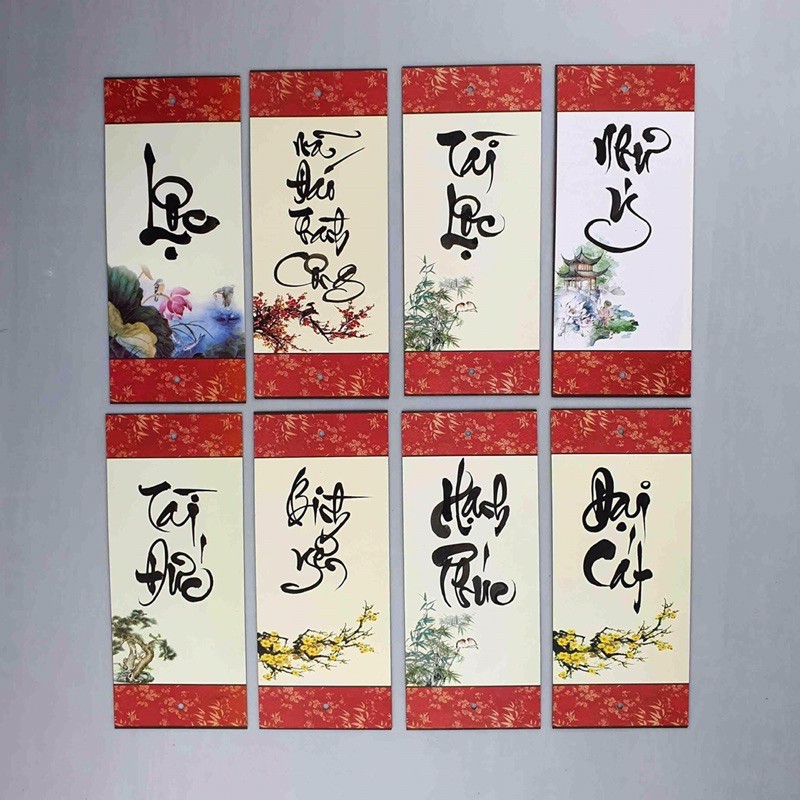 Lộc
Mã
Đáo
Thành
Công
Tài
Lộc
Như
Ý
Tài
Đức
Bình
Yên
Hạnh
Phúc
Đại
Cát